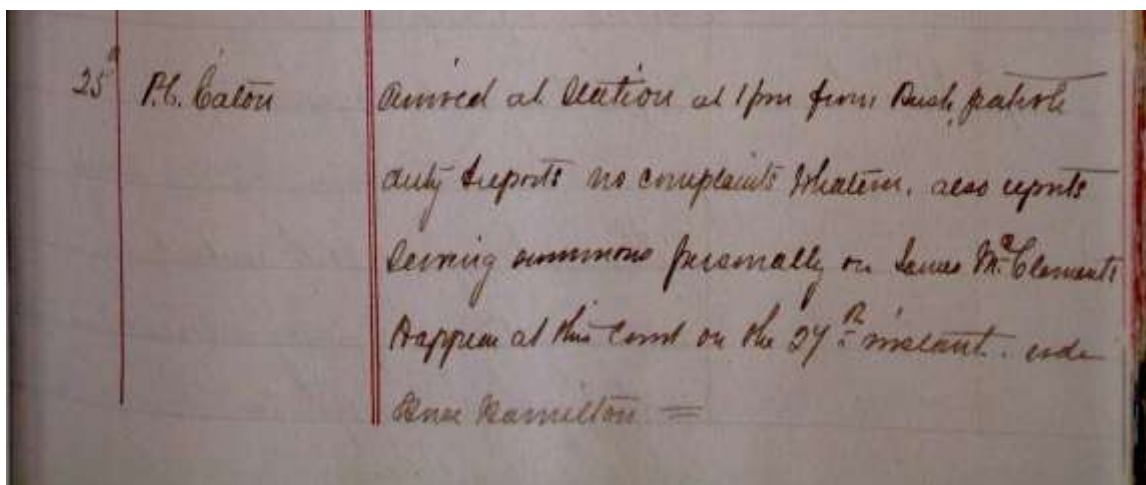 25th P.C. Eaton Arrived at Station at 1pm from Bush patrole
duty & reports no complaints Whatever. also reports
Serving summons personally on James McClements
to appear at this Court on the 27th instant.
Hamilton =